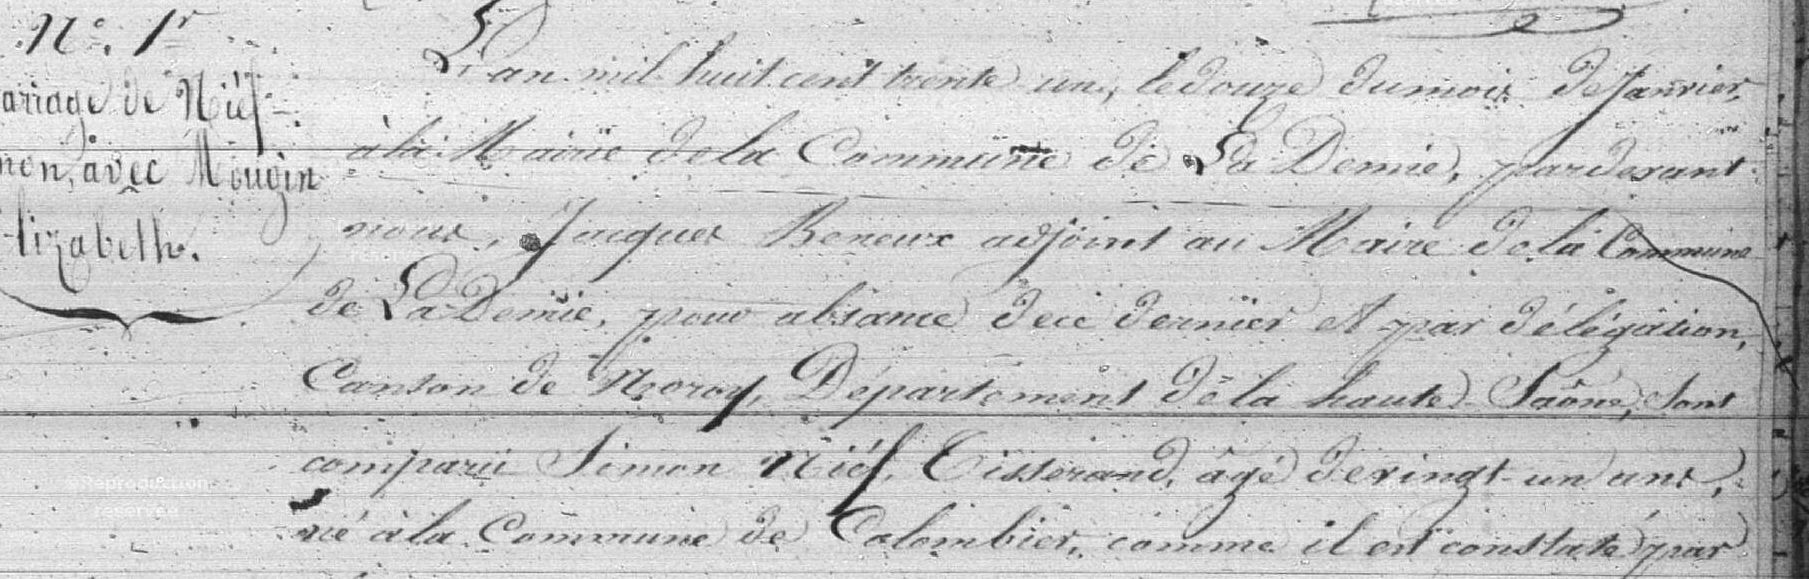 N.° 1r
ariage de Niéf
mon, avec Mougin
lizabeth.
L'an mil huit cent trente un, le douze du mois de Janvier,
à la Mairie de la Commune de La Demie, pardevant
nous, Jacques Reneux adjoint au Maire de la Commune
de La Demie, pour absance de ce dernier et par délégation,
Canton de Noroy, Département de la haute Saône, sont
comparu Simon Niéf, Tisserand, âgé de vingt-un ans,
né à la Commune de Colombier, comme il est constaté par
©Reproduction
réservée